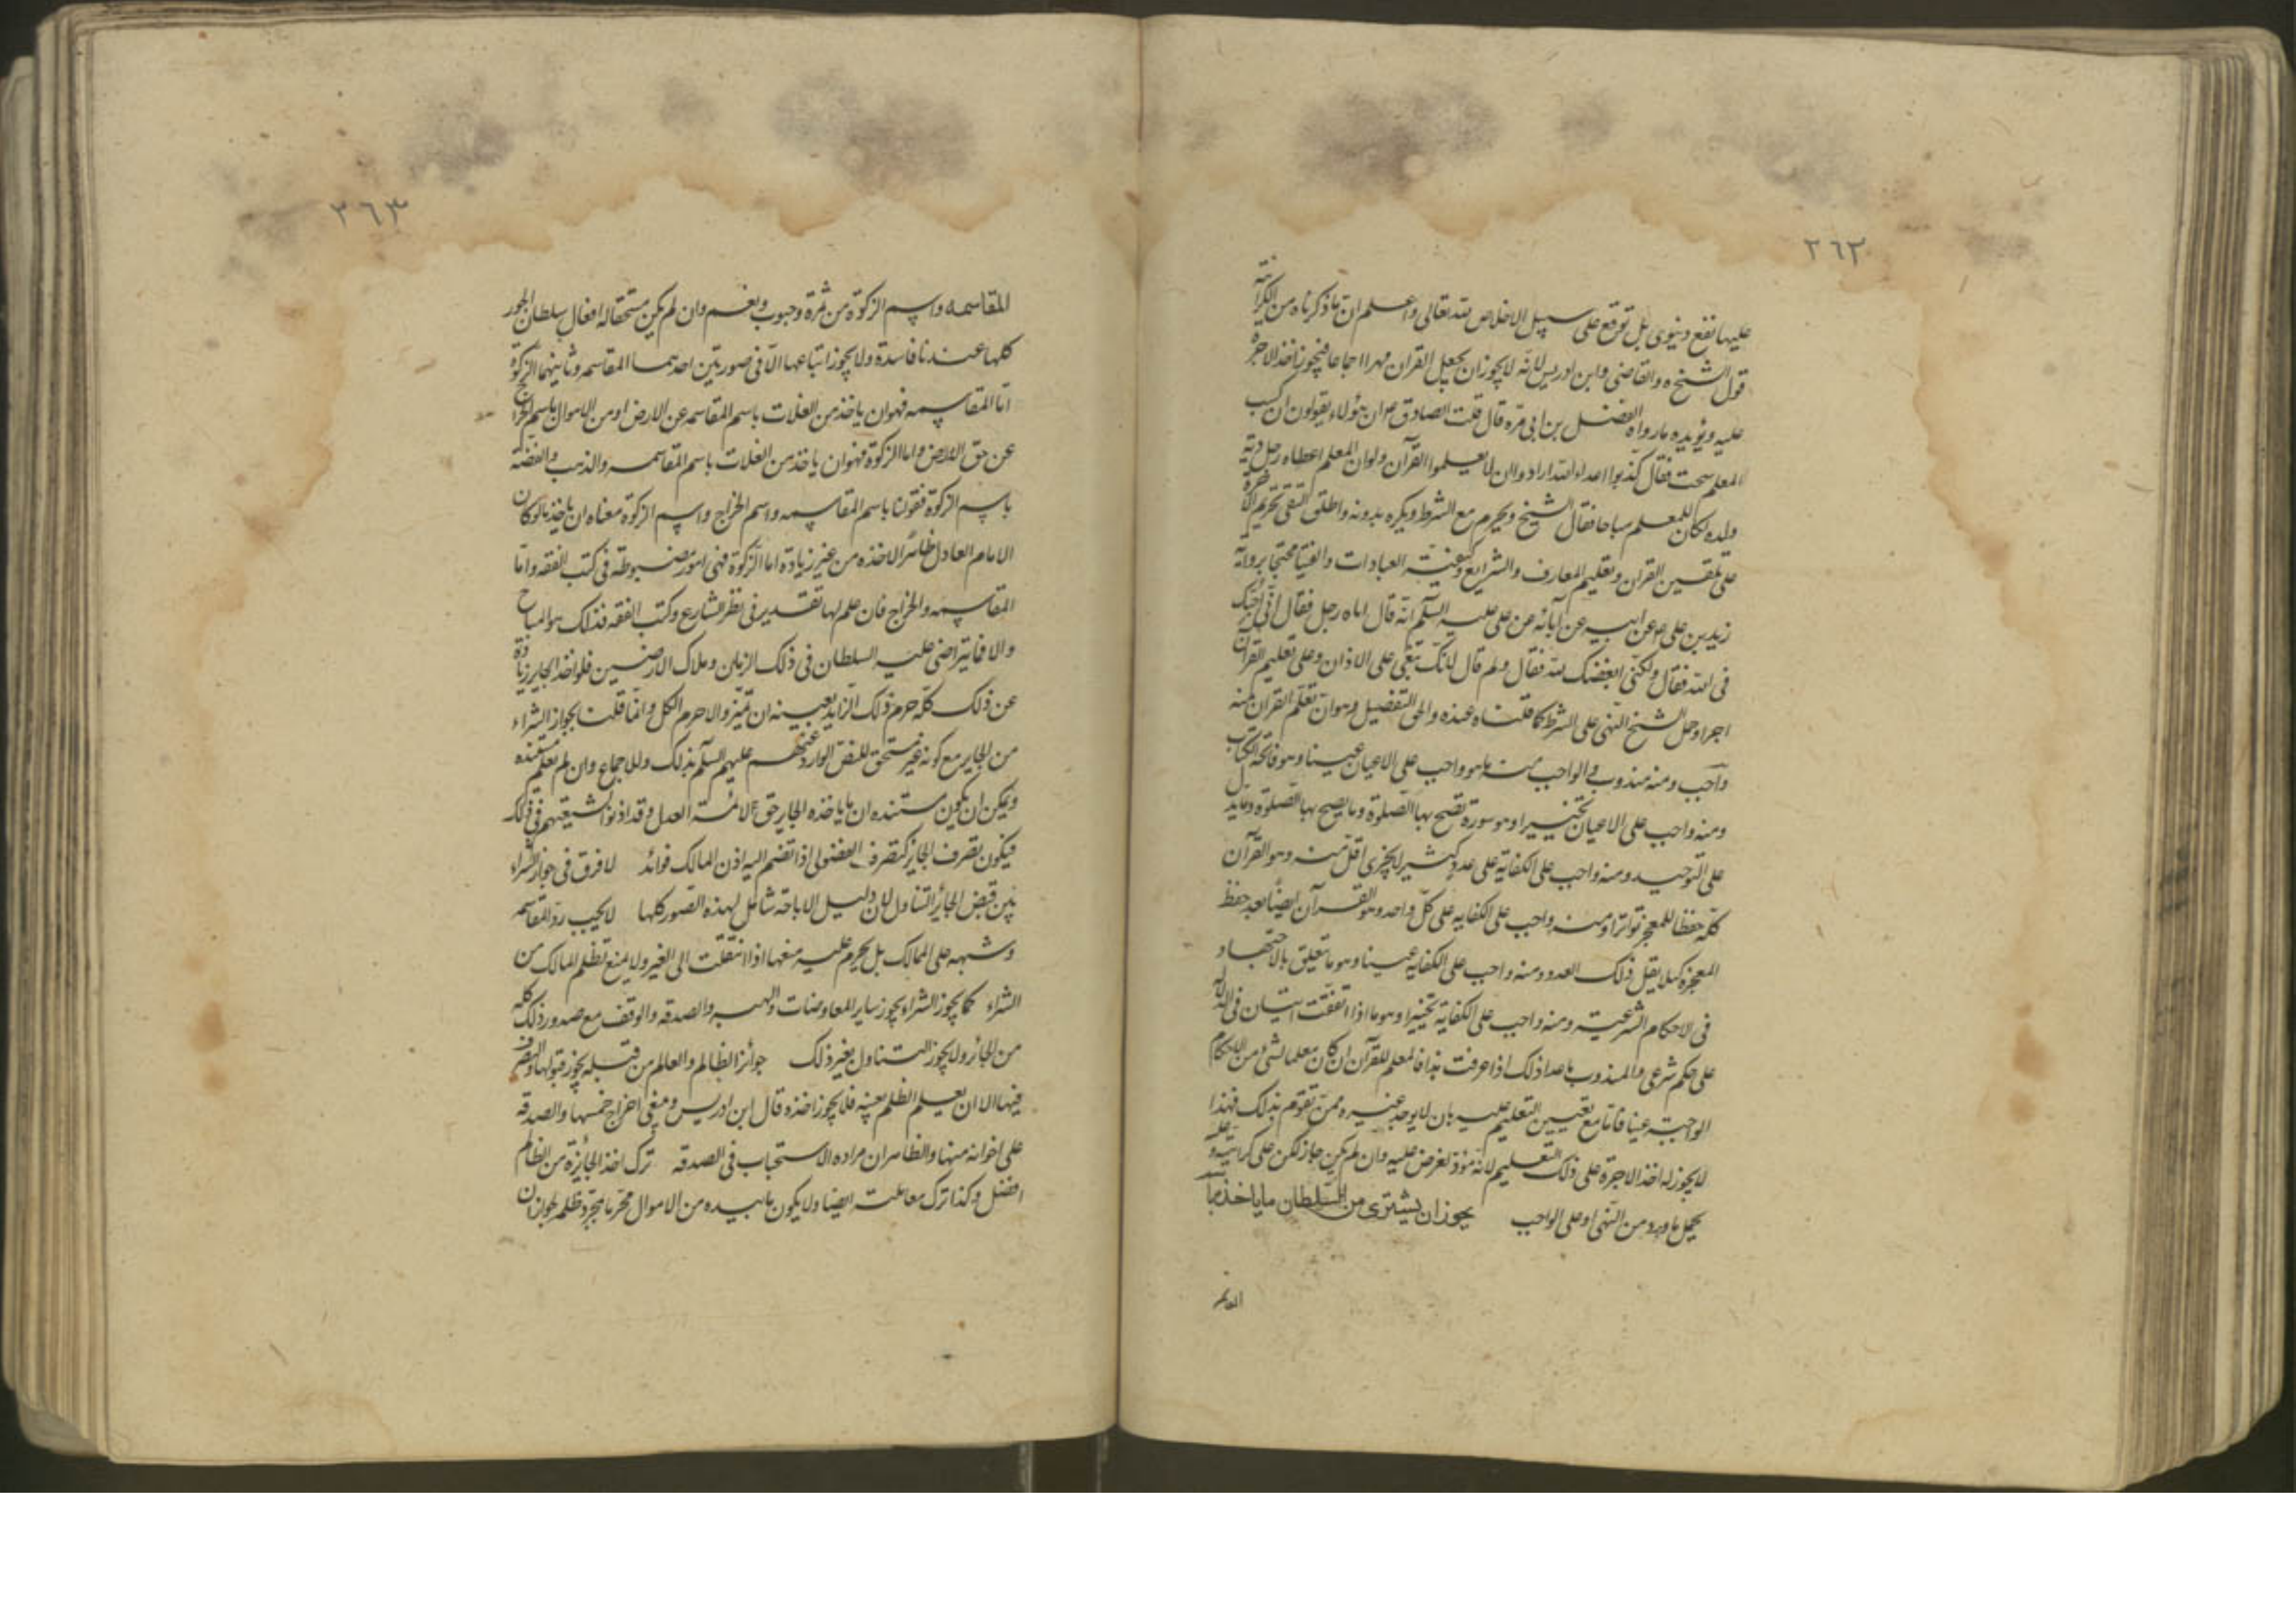 ٣٦٢
عليها نفع دنيوى بل توقع على سبيل الاخلاص لله تعالى واعلم ان ما ذكرناه من الكراهة
قول الشيخ ره والقاضى وابن ادريس لانه لا يجوز ان يجعل القران مهرا اجماعا فيجوز اخذ الاجرة
عليه ويؤيده ما رواه الفضل بن ابى قره قال قلت الصادق ع ان هؤلاء يقولون ان كسب
المعلم سحت فقال كذبوا اعداء الله ارادوا ان لا يعلموا القرآن ولو ان المعلم اعطاه رجل دية
ولده لكان للمعلم مباحا فقال الشيخ ويحرم مع الشرط ويكره بدونه واطلق التقى تحريم الاجرة
على تلقين القران وتعليم المعارف والشرايع وكيفية العبادات والفتيا محتجا برواية
زيد بن على ع عن ابيه عن آبائه عن على عليه السلم انه قال اتاه رجل فقال انى احبك
فى الله فقال ولكنى ابغضك لله فقال ولم قال لانك تبغى على الاذان وعلى تعليم القرآن
اجرا وحمل الشيخ النهى على الشرط كما قلناه عنده والحق التفضيل وهو ان تعلم القران منه
واجب ومنه مندوب والواجب منه ما هو واجب على الاعيان عينا وهو فاتحة الكتاب
ومنه واجب على الاعيان تخييرا وهو سورة تصح بها الصلوة وما يصح بها الصلوة وما يدل
على التوحيد ومنه واجب على الكفاية على عدد كثير لا يجزى اقل منه وهو القرآن
كله حفظا للمعجز تواترا ومنه واجب على الكفايه على كل واحد وهو القرآن ايضا بعد حفظ
المعجزة كيلا يقل ذلك العدد ومنه واجب على الكفايه عينا وهو ما تعلق بالاجتهاد
فى الاحكام الشرعية ومنه واجب على الكفاية تخييرا وهو ما اذا اتفقت ايتان فى الدلالة
على حكم شرعى والمندوب ما عدا ذلك اذا عرفت هذا فالمعلم للقرآن ان كان معلما لشئ من الاحكام
الواجبة عينا فاما مع تعيين التعليم عليه بان لا يوجد غيره ممن تقوم بذلك فهذا
لا يجوز له اخذ الاجرة على ذلك التعليم لانه مؤد لفرض عليه وان لم يكن جاز لكن على كراهية وعليه
يحمل ما ورد من النهى او على الواجب يجوز ان يشترى من السلطان ما ياخذ باسم
المقاسمه
٣٦٣
المقاسمه واسم الزكوة من ثمرة وحبوب ونعم وان لم يكن مستحقا له افعال سلطان الجور
كلها عندنا فاسدة ولا يجوز اتباعها الا فى صورتين احدهما المقاسمه وثانيهما الزكوة
اما المقاسمه فهو ان ياخذ من الغلات باسم المقاسمه عن الارض او من الاموال باسم الخراج
عن حق الارض واما الزكوة فهو ان ياخذ من الغلات باسم المقاسمه والذهب والفضة
باسم الزكوة فقولنا باسم المقاسمه واسم الخراج واسم الزكوة معناه ان ياخذ ما لو كان
الامام العادل ظاهرا لاخذه من غير زيادة اما الزكوة فهى امور مضبوطة فى كتب الفقه واما
المقاسمه والخراج فان علم لها تقدير فى نظر الشارع وكتب الفقه فذلك هو المباح
والا فما يتراضى عليه السلطان فى ذلك الزمان وملاك الارضين فلو اخذ الجاير زيادة
عن ذلك كله حرم ذلك الزايد بعينه ان تميز والا حرم الكل وانما قلنا بجواز الشراء
من الجاير مع كونه غير مستحق للنص الوارد عنهم عليهم السلم بذلك وللاجماع وان لم نعلم مستنده
ويمكن ان يكون مستنده ان ما ياخذه الجاير حق لائمة العدل وقد اذنوا لشيعتهم فى ذلك
فيكون تصرف الجاير كتصرف الفضولى اذا تضم اليه اذن المالك فوائد لا فرق فى جواز الشراء
بين قبض الجائر التناول لان دليل الاباحة شامل لهذه الصور كلها لا يجب رد المقاسم
وشبهه على المالك بل يحرم عليه منعها اذا انتقلت الى الغير ولا يمنع تظلم المالك من
الشراء كما يجوز الشراء يجوز ساير المعاوضات والهبه والصدقه والوقف مع صدور ذلك كله
من الجائر ولا يجوز التناول بغير ذلك جوائز الظالم والعالم من قبله يجوز قبولها والتصرف
فيها الا ان يعلم الظلم بعينه فلا يجوز اخذه قال ابن ادريس وينبغى اخراج خمسها والصدقه
على اخوانه منها والظاهر ان مراده الاستحباب فى الصدقه ترك اخذ الجايزة من الظالم
افضل وكذا ترك معاملته ايضا ولا يكون ما بيده من الاموال محرما بمجرد ظلمه لجواز ان